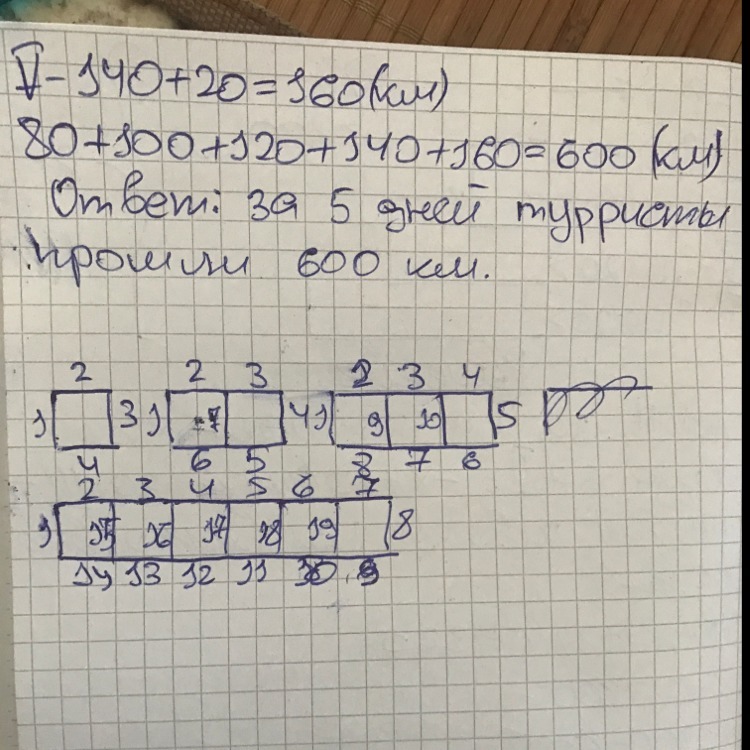 V - 140+20=160(км)
80+100+120+140+160=600(км)
Ответ: за 5 дней турристы
прошли 600 км.
2 2 3 2 3 4
1 3 1 7 4 1 9 10 5
4 6 5 8 7 6
2 3 4 5 6 7
1 15 16 17 18 19 8
14 13 12 11 10 9